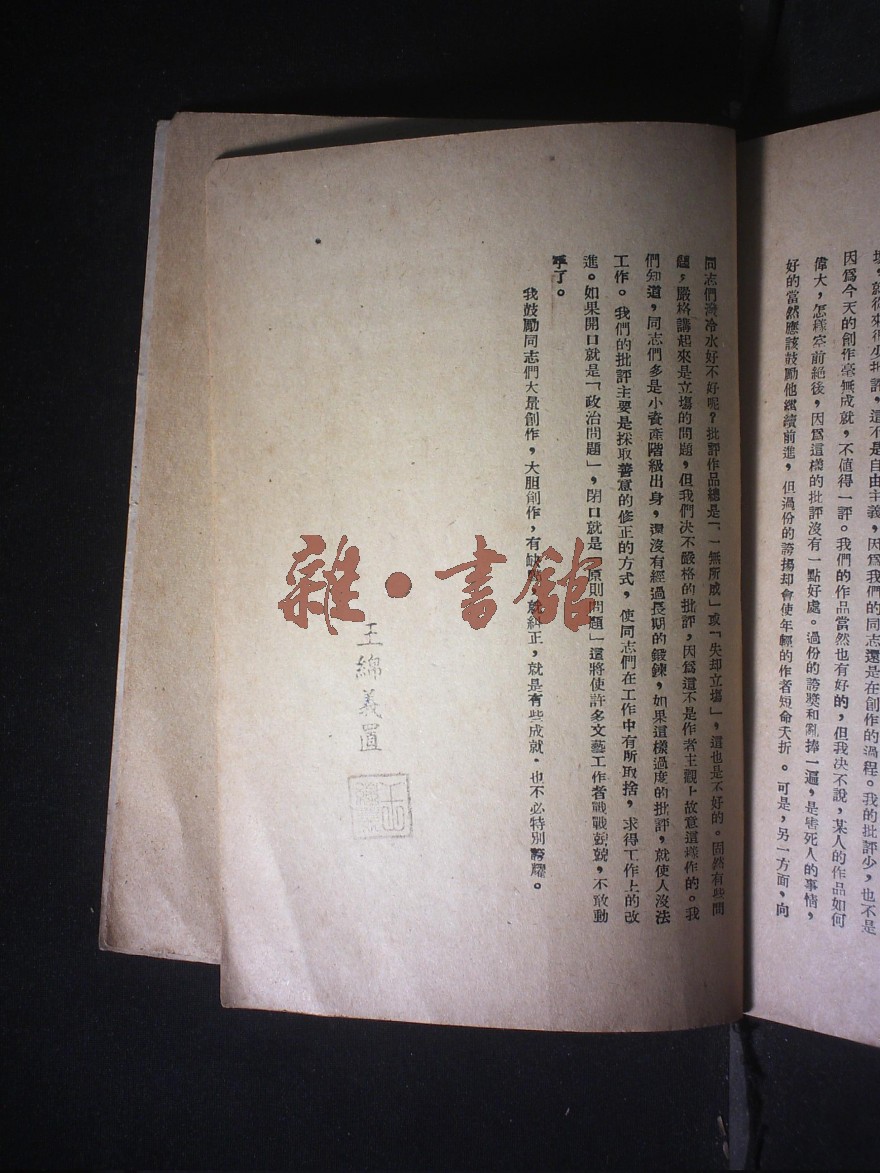 就從來很少批評，這不是自由主義，因爲我們的同志還是在創作的過程。我的批評少，也不是
因爲今天的創作毫無成就，不值得一評。我們的作品當然也有好的，但我决不說，某人的作品如何
偉大，怎樣空前絕後，因爲這樣的批評沒有一點好處。過份的誇獎和亂捧一遍，是害死人的事情，
好的當然應該鼓勵他繼續前進，但過份的誇揚却會使年輕的作者短命夭折。可是，另一方面，向
同志們潑冷水好不好呢？批評作品總是「一無所成」或「失却立塲」，這也是不好的。固然有些問
題，嚴格講起來是立塲的問題，但我們决不嚴格的批評，因爲這不是作者主觀上故意這樣作的。我
們知道，同志們多是小資產階級出身，還沒有經過長期的鍛鍊，如果這樣過度的批評，就使人沒法
工作。我們的批評主要是採取善意的修正的方式，使同志們在工作中有所取捨，求得工作上的改
進。如果開口就是「政治問題」，閉口就是「原則問題」這將使許多文藝工作者戰戰兢兢，不敢動
手了。
我鼓勵同志們大量創作，大胆創作，有缺點，就糾正，就是有些成就．也不必特別誇耀。
雜·書館
王綿義置